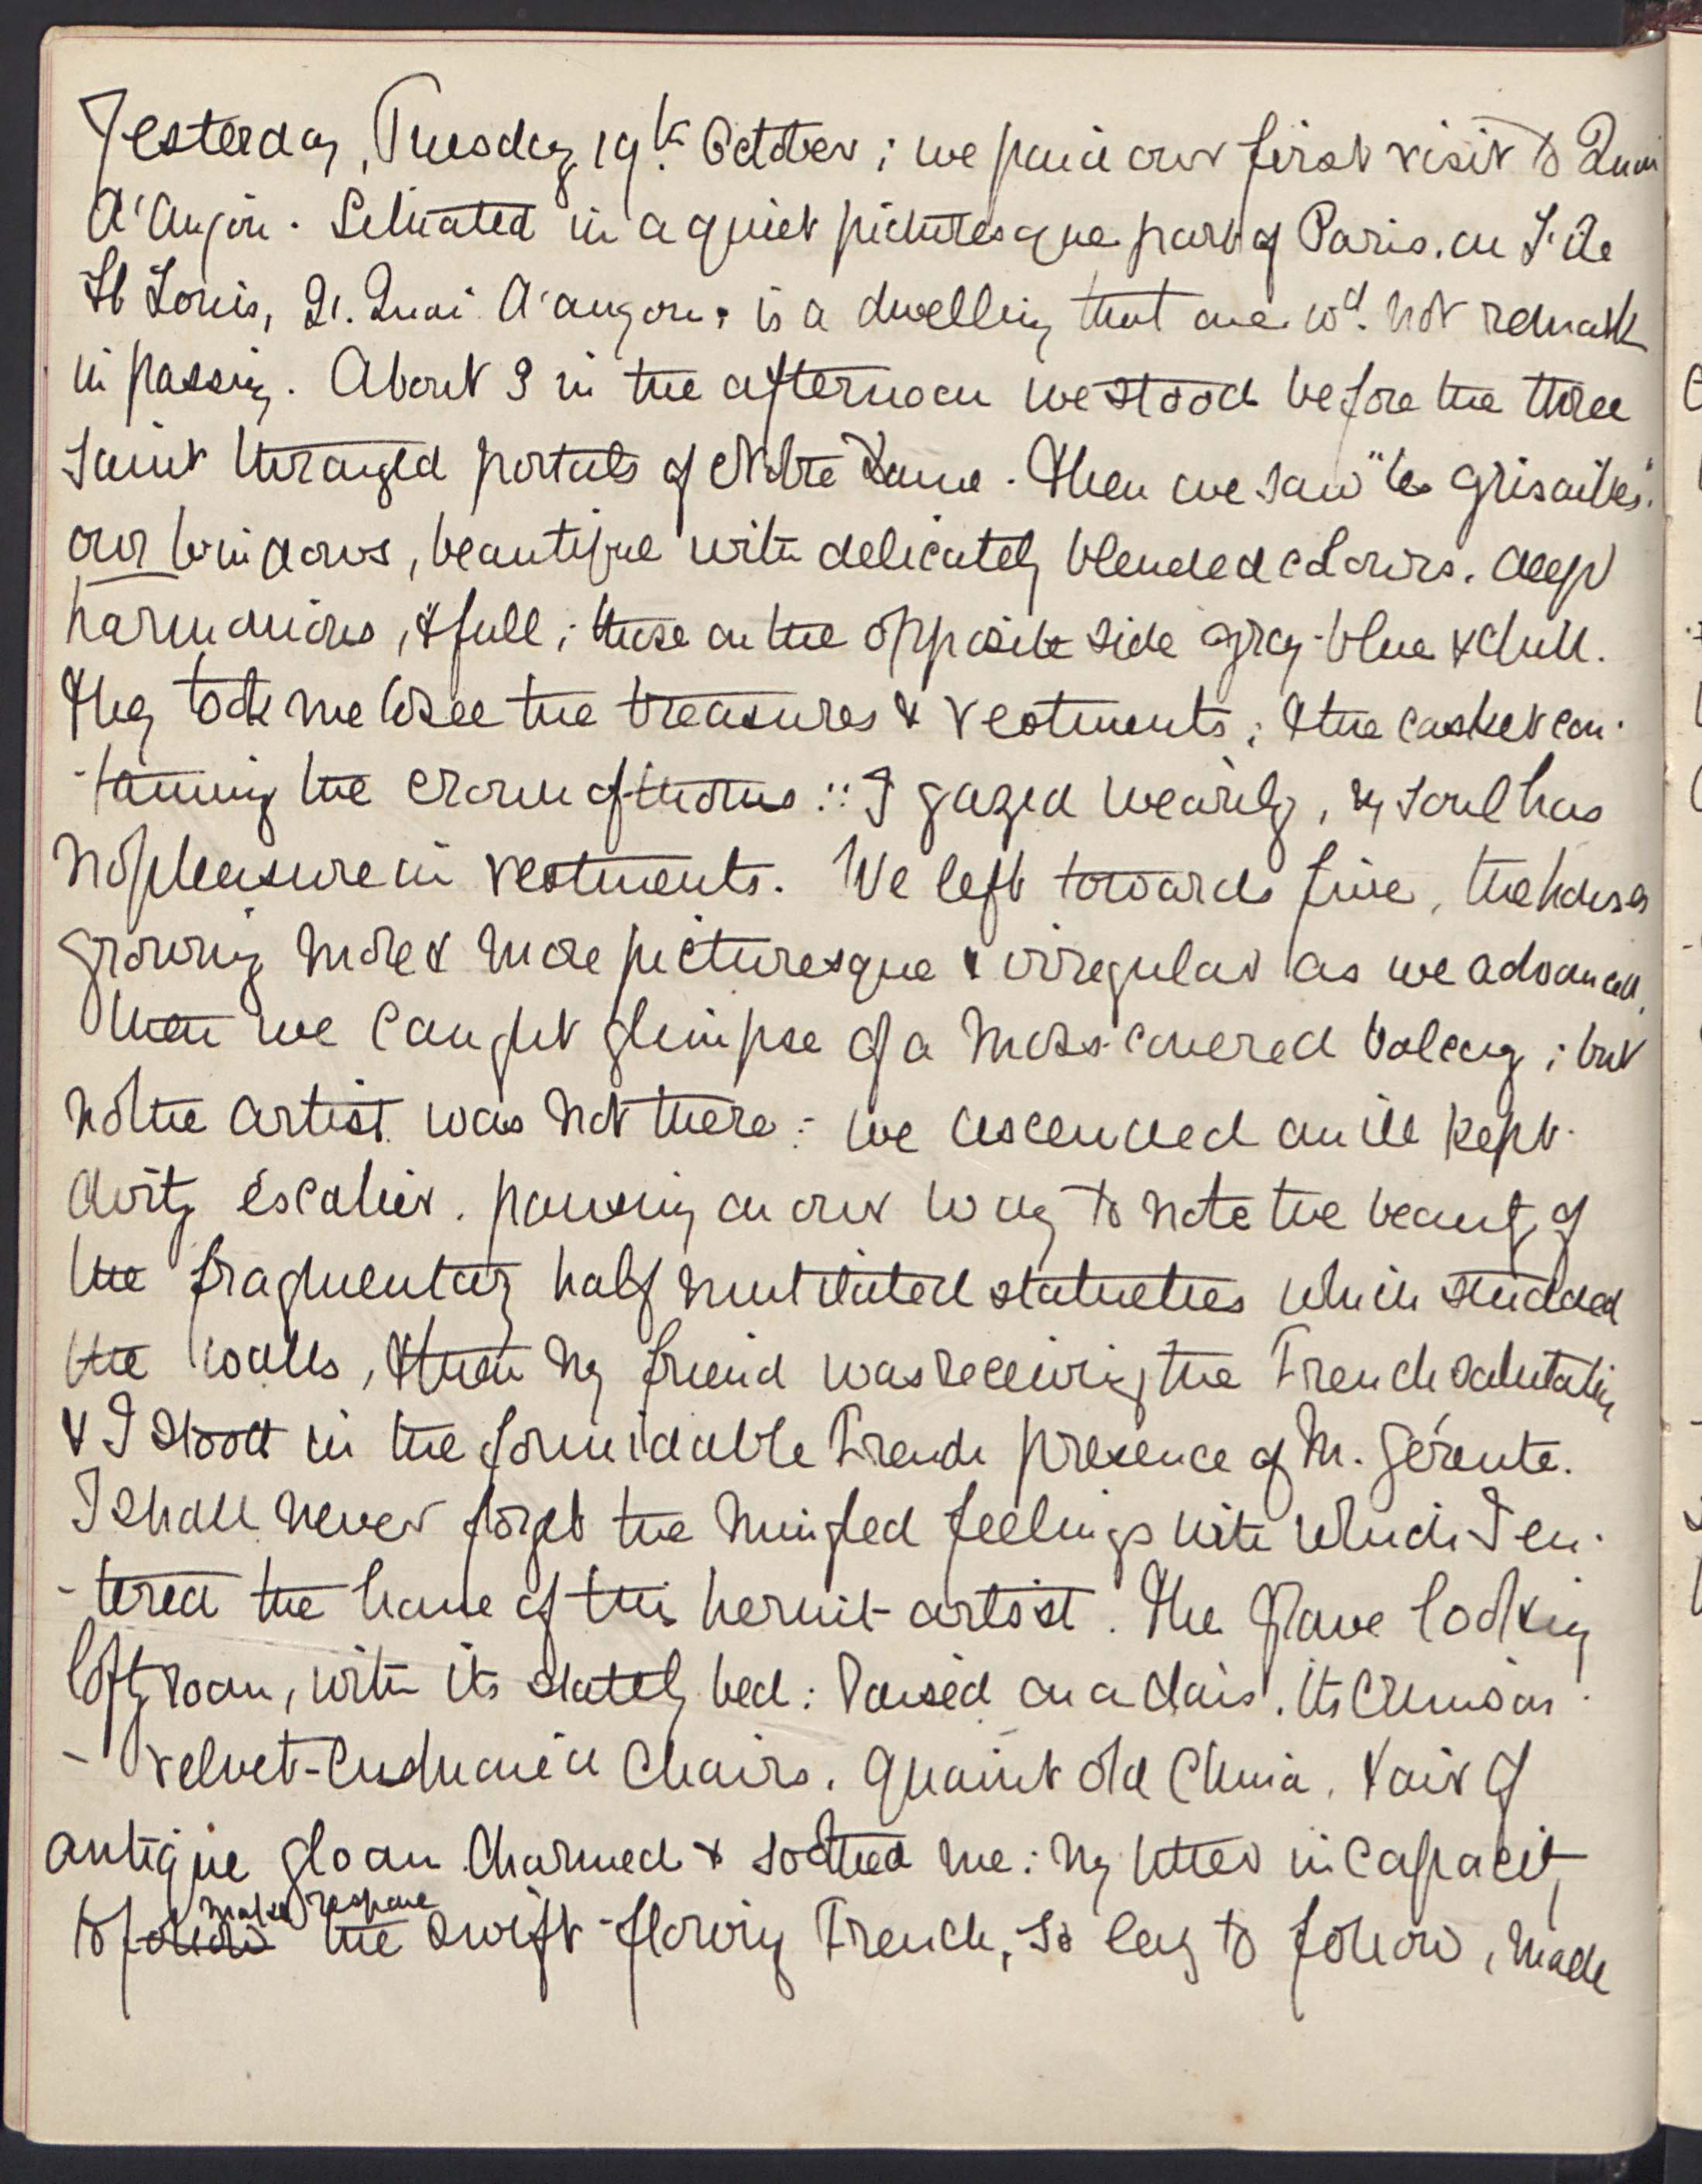 Yesterday, Tuesday 19th. October; we paid our first visit to Quai
d'Anjou. Situated in a quiet picturesque part of Paris. on I. de
St Louis, 21. Quai d'anjou. is a dwelling that one wd. not remark
in passing. About 3 in the afternoon we stood before the three
saint thronged portals of Notre Dame. Then we saw "les grisailles".
our windows, beautiful with delicately blended colours. deep
harmonious, & full; those on the opposite side grey-blue & dull.
They took me to see the treasures & vestments; & the casket con-
-taining the crown of thorns :: I gazed wearily, my soul has
no pleasure in vestments. We left towards five, the houses
growing more & more picturesque & irregular as we advanced,
then we caught glimpse of a moss-covered balcony; but
no the artist was not there: we ascended an ill kept.
dirty éscalier. pausing on our way to note the beauty of
the fragmentary half mutilated statuettes which studded
the walls, & then my friend was receiving the French salutation
& I stood in the formidable French presence of M. Gérente.
I shall never forget the mingled feelings with which I en-
-tered the home of this hermit-artist. The grave looking
lofty room, with its stately bed: raised on a dais. its crimson-
- velvet-cushioned chairs. quaint old china. & air of
antique gloom charmed & soothed me: my utter incapacity
make response
to follow the swift-flowing French, so easy to follow, made